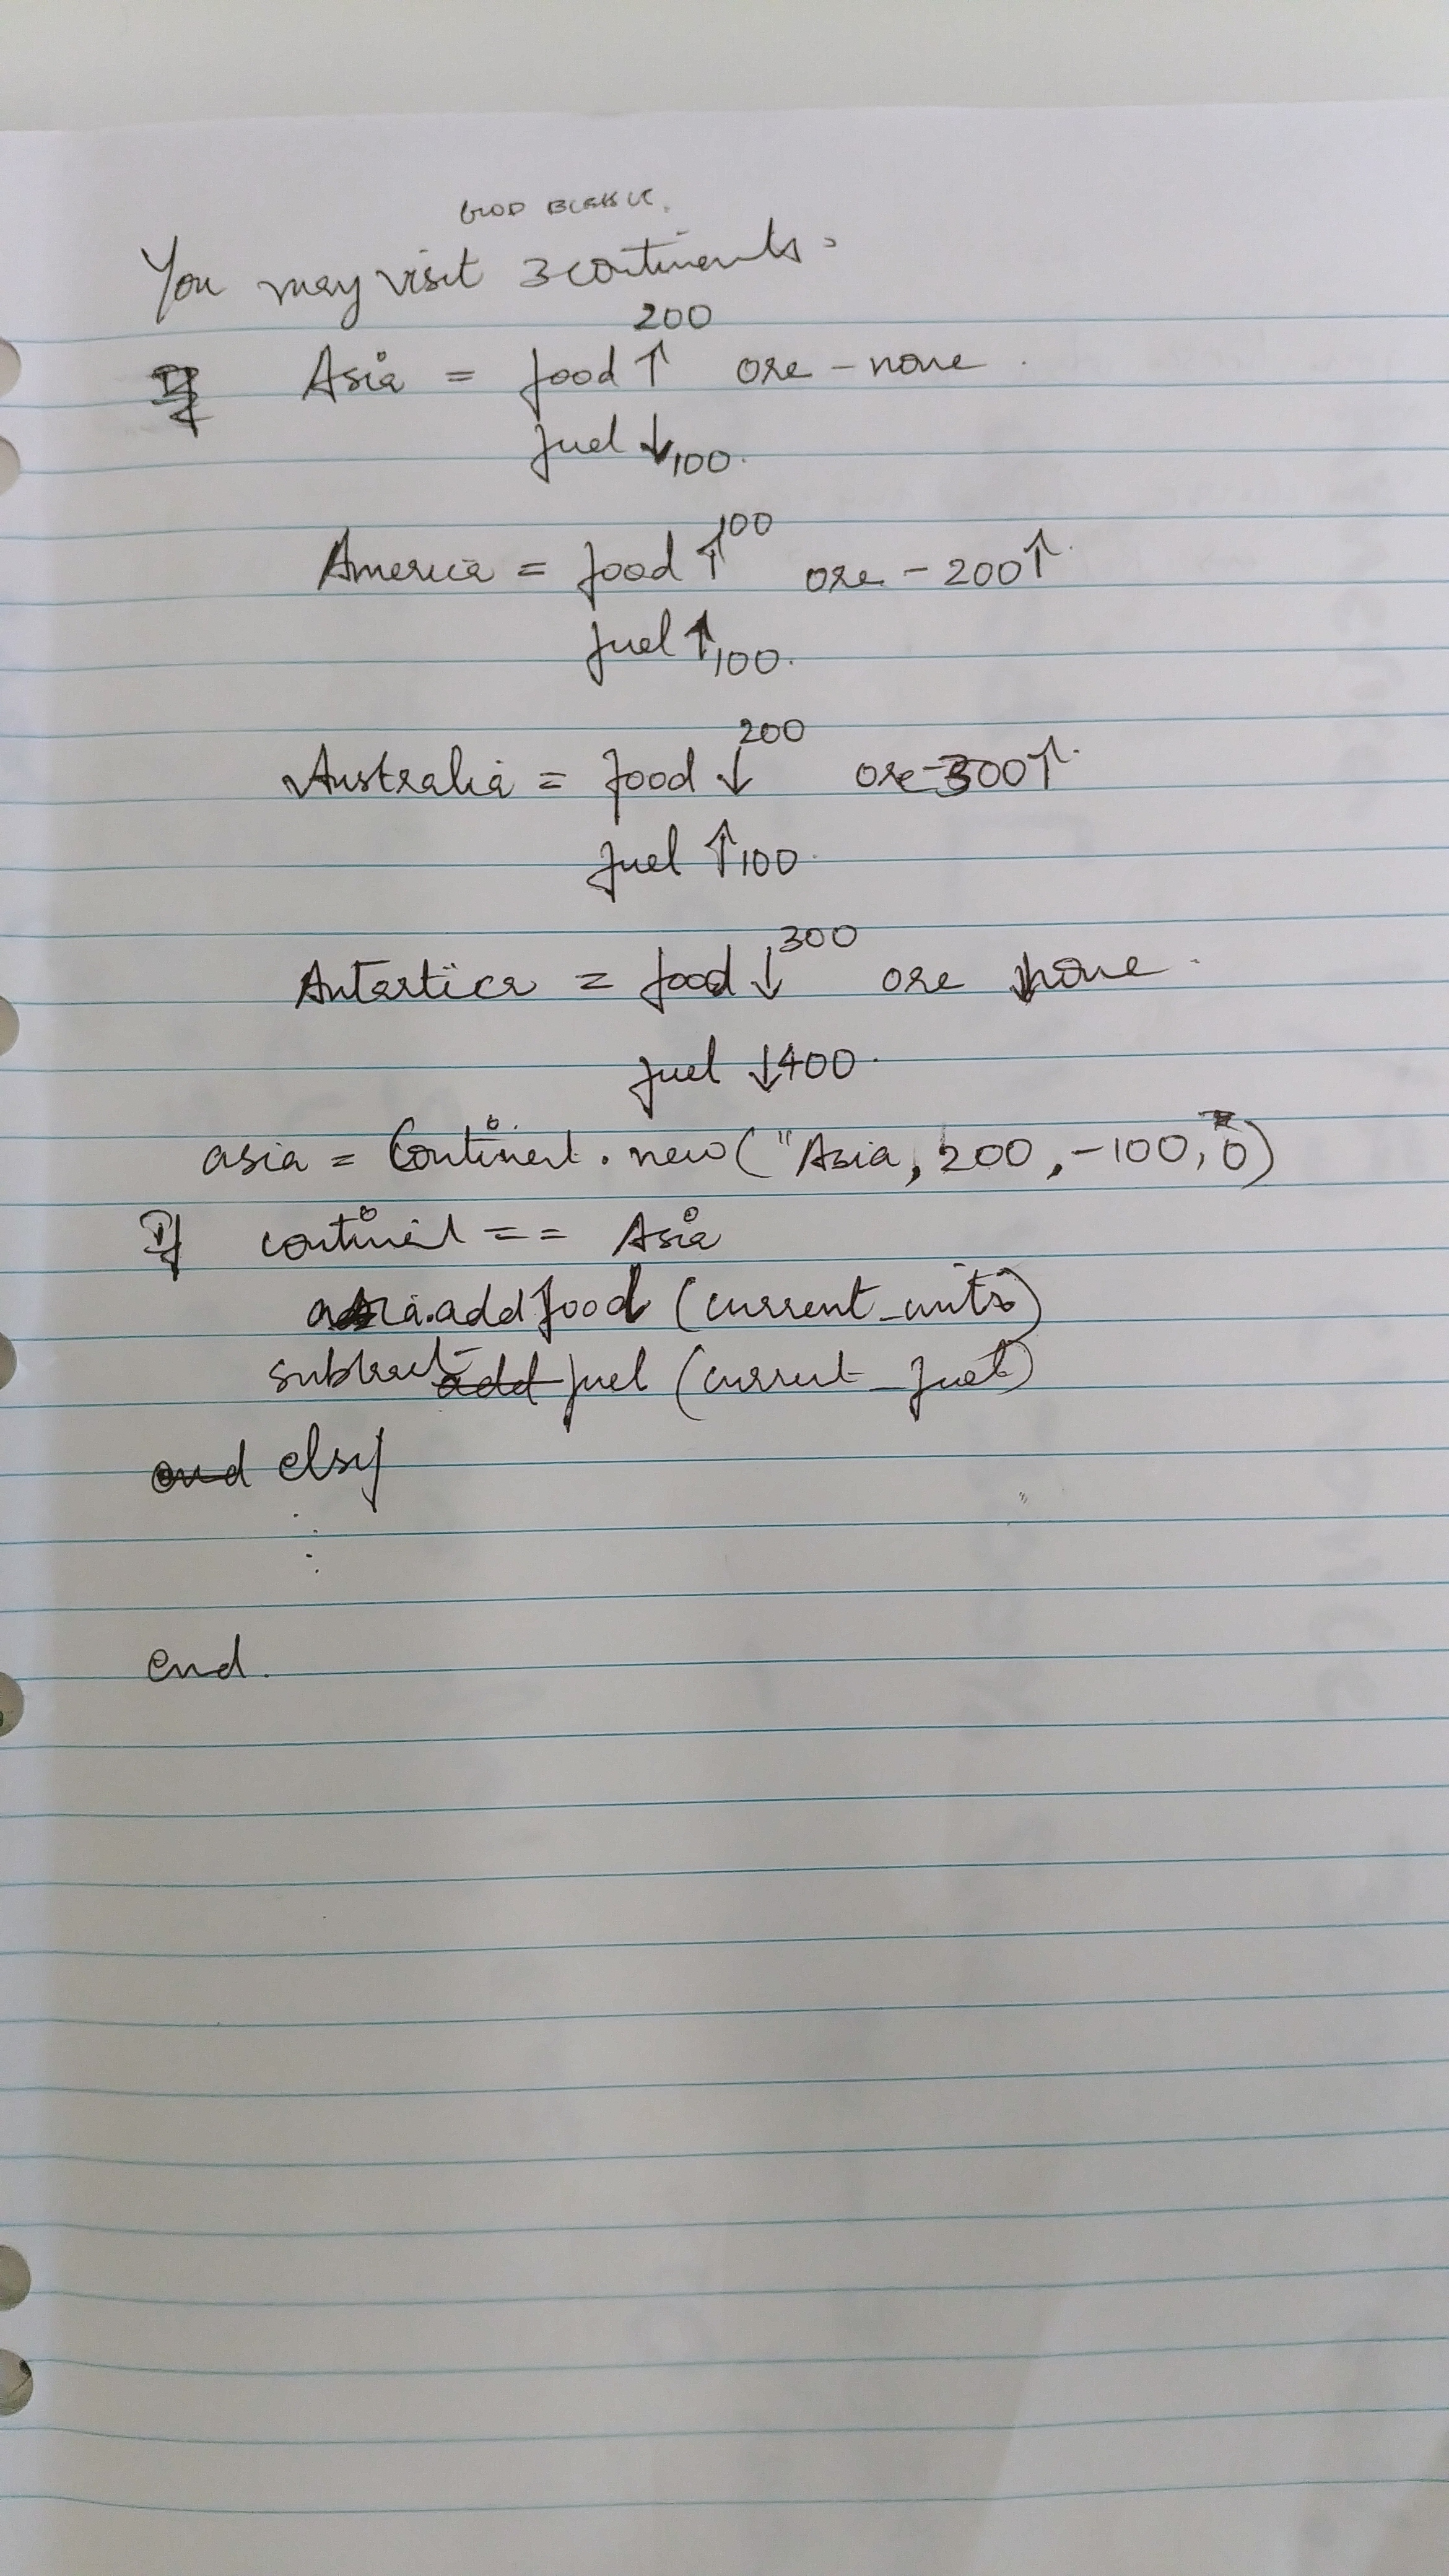 You may visit 3 continents.
If Asia = food ↑ 200 ore - none.
fuel ↓ 100.
America = food ↑ 100 ore - 200 ↑.
fuel ↑ 100.
Australia = food ↓ 200 ore - 300 ↑.
fuel ↑ 100.
Antartica = food ↓ 300 ore none.
fuel ↓ 400.
asia = Continent.new("Asia, 200, -100, 0)
If continent == Asia
asia.add food (current_units)
subtract add fuel (current_fuel)
end elsif
:
:
end.